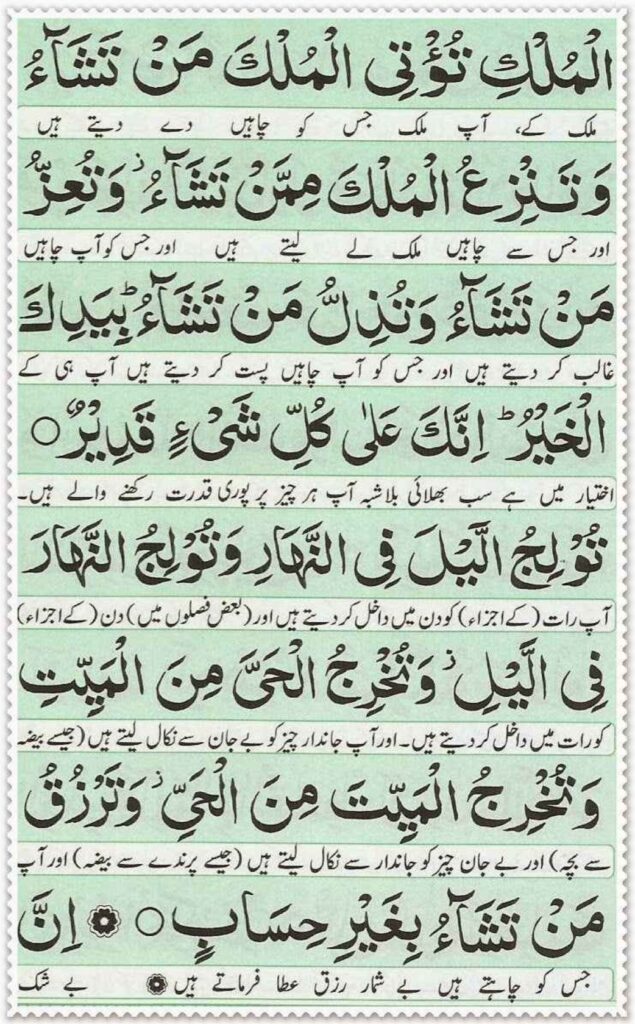 الْمُلْكِ تُؤْتِی الْمُلْكَ مَنْ تَشَآءُ
ملک کے، آپ ملک جس کو چاہیں دے دیتے ہیں
وَ تَنْزِعُ الْمُلْكَ مِمَّنْ تَشَآءُ ۫ وَ تُعِزُّ
اور جس سے چاہیں ملک لے لیتے ہیں اور جس کو آپ چاہیں
مَنْ تَشَآءُ وَ تُذِلُّ مَنْ تَشَآءُ ؕ بِیَدِكَ
غالب کر دیتے ہیں اور جس کو آپ چاہیں پست کر دیتے ہیں آپ ہی کے
الْخَیْرُ ؕ اِنَّكَ عَلٰی كُلِّ شَیْءٍ قَدِیْرٌ ○
اختیار میں ہے سب بھلائی بلاشبہ آپ ہر چیز پر پوری قدرت رکھنے والے ہیں۔
تُوْلِجُ الَّیْلَ فِی النَّهَارِ وَ تُوْلِجُ النَّهَارَ
آپ رات (کے اجزاء) کو دن میں داخل کر دیتے ہیں اور (بعض فصلوں میں) دن (کے اجزاء)
فِی الَّیْلِ ۫ وَ تُخْرِجُ الْحَیَّ مِنَ الْمَیِّتِ
کو رات میں داخل کر دیتے ہیں۔ اور آپ جاندار چیز کو بے جان سے نکال لیتے ہیں (جیسے بیضہ
وَ تُخْرِجُ الْمَیِّتَ مِنَ الْحَیِّ ۫ وَ تَرْزُقُ
سے بچہ) اور بے جان چیز کو جاندار سے نکال لیتے ہیں (جیسے پرندے سے بیضہ) اور آپ
مَنْ تَشَآءُ بِغَیْرِ حِسَابٍ ○ ❁ اِنَّ
جس کو چاہتے ہیں بے شمار رزق عطا فرماتے ہیں ❁ بے شک